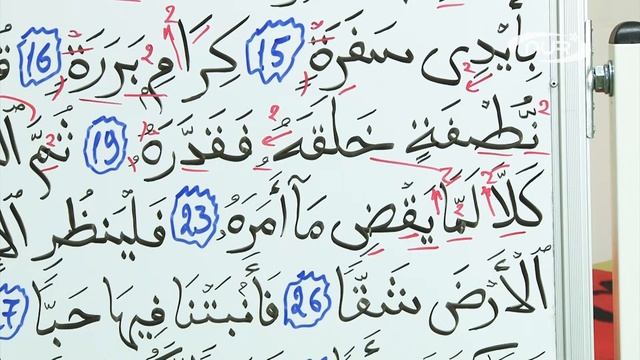 بِأَيْدِي سَفَرَةٍ 15 كِرَامٍ بَرَرَةٍ 16
نُّطْفَةٍ خَلَقَهُ فَقَدَّرَهُ 19 ثُمَّ
كَلَّا لَمَّا يَقْضِ مَآ أَمَرَهُ 23 فَلْيَنظُرِ
الْأَرْضَ شَقًّا 26 فَأَنبَتْنَا فِيهَا حَبًّا